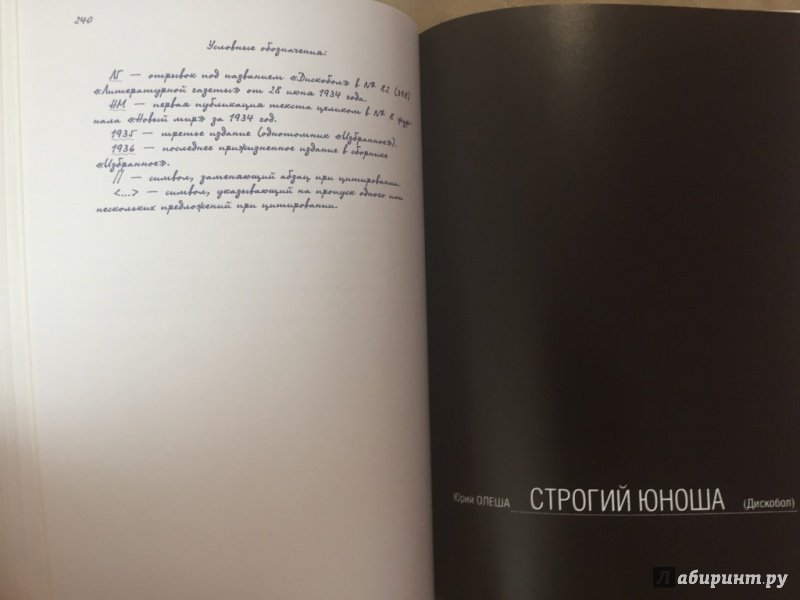 240
Условные обозначения:
ЛГ — отрывок под названием «Дискобол» в № 82 (398)
«Литературной газеты» от 28 июня 1934 года.
НМ — первая публикация текста целиком в № 8 жур-
нала «Новый мир» за 1934 год.
1935 — третье издание (однотомник «Избранное»).
1936 — последнее прижизненное издание в сборнике
«Избранное».
// — символ, заменяющий абзац при цитировании.
<...> — символ, указывающий на пропуск одного или
нескольких предложений при цитировании.
Юрий ОЛЕША СТРОГИЙ ЮНОША (Дискобол)
Лабиринт.ру